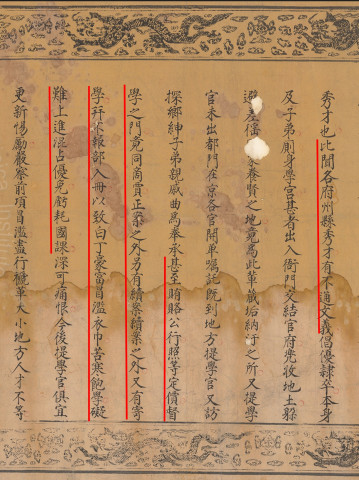 秀才也比聞各府州縣秀才有不通文義倡優隸卒本身
及子弟廁身學宮甚者出入衙門交結官府兜收地土躲
避差徭家養賢之地竟爲此輩藏垢納汙之所又提學
官未出都門在京各官開單囑託既到地方提學官又訪
探鄉紳子弟親戚曲爲奉承甚至賄賂公行照等定價督
學之門竟同商賈正案之外另有續案續案之外又有寄
學并不報部入冊以致白丁豪富冒濫衣巾苦寒飽學礙
難上進混占優免虧耗國課深可痛恨今後提學官俱宜
更新惕勵嚴察前項冒濫盡行褫革大小地方人才不等